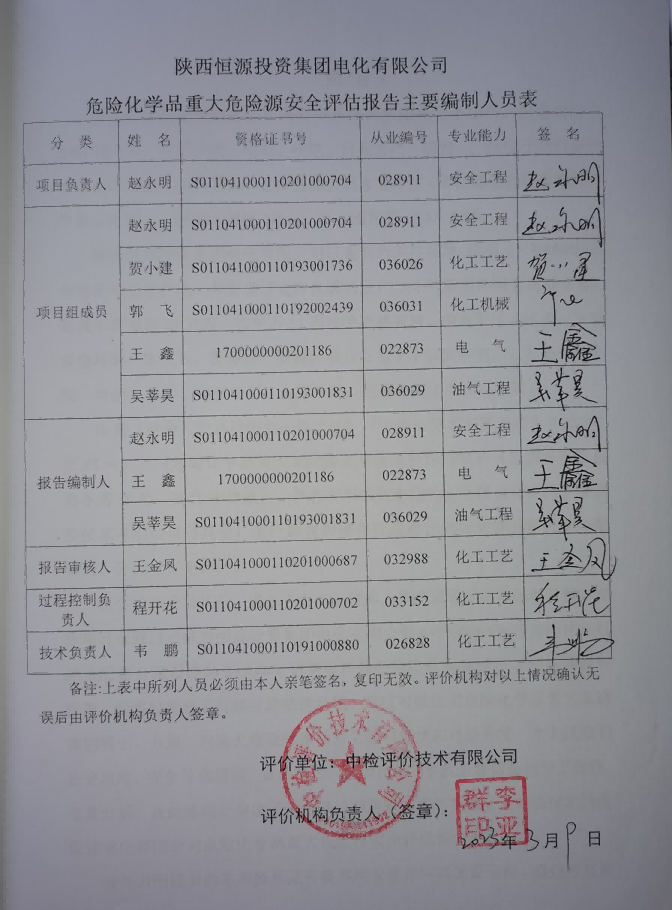 陕西恒源投资集团电化有限公司
危险化学品重大危险源安全评估报告主要编制人员表
分 类 姓 名 资格证书号 从业编号 专业能力 签 名
项目负责人 赵永明 S011041000110201000704 028911 安全工程 赵永明
项目组成员 赵永明 S011041000110201000704 028911 安全工程 赵永明
贺小建 S011041000110193001736 036026 化工工艺
郭 飞 S011041000110192002439 036031 化工机械
王 鑫 1700000000201186 022873 电 气 王鑫
吴莘昊 S011041000110193001831 036029 油气工程 吴莘昊
报告编制人 赵永明 S011041000110201000704 028911 安全工程 赵永明
王 鑫 1700000000201186 022873 电 气 王鑫
吴莘昊 S011041000110193001831 036029 油气工程 吴莘昊
报告审核人 王金凤 S011041000110201000687 032988 化工工艺 王金凤
过程控制负责人 程开花 S011041000110201000702 033152 化工工艺 程开花
技术负责人 韦 鹏 S011041000110191000880 026828 化工工艺
备注:上表中所列人员必须由本人亲笔签名,复印无效。评价机构对以上情况确认无
误后由评价机构负责人签章。
评价单位:中检评价技术有限公司
中检评价技术有限公司
评价机构负责人(签章):
李亚群印
2023年3月9日